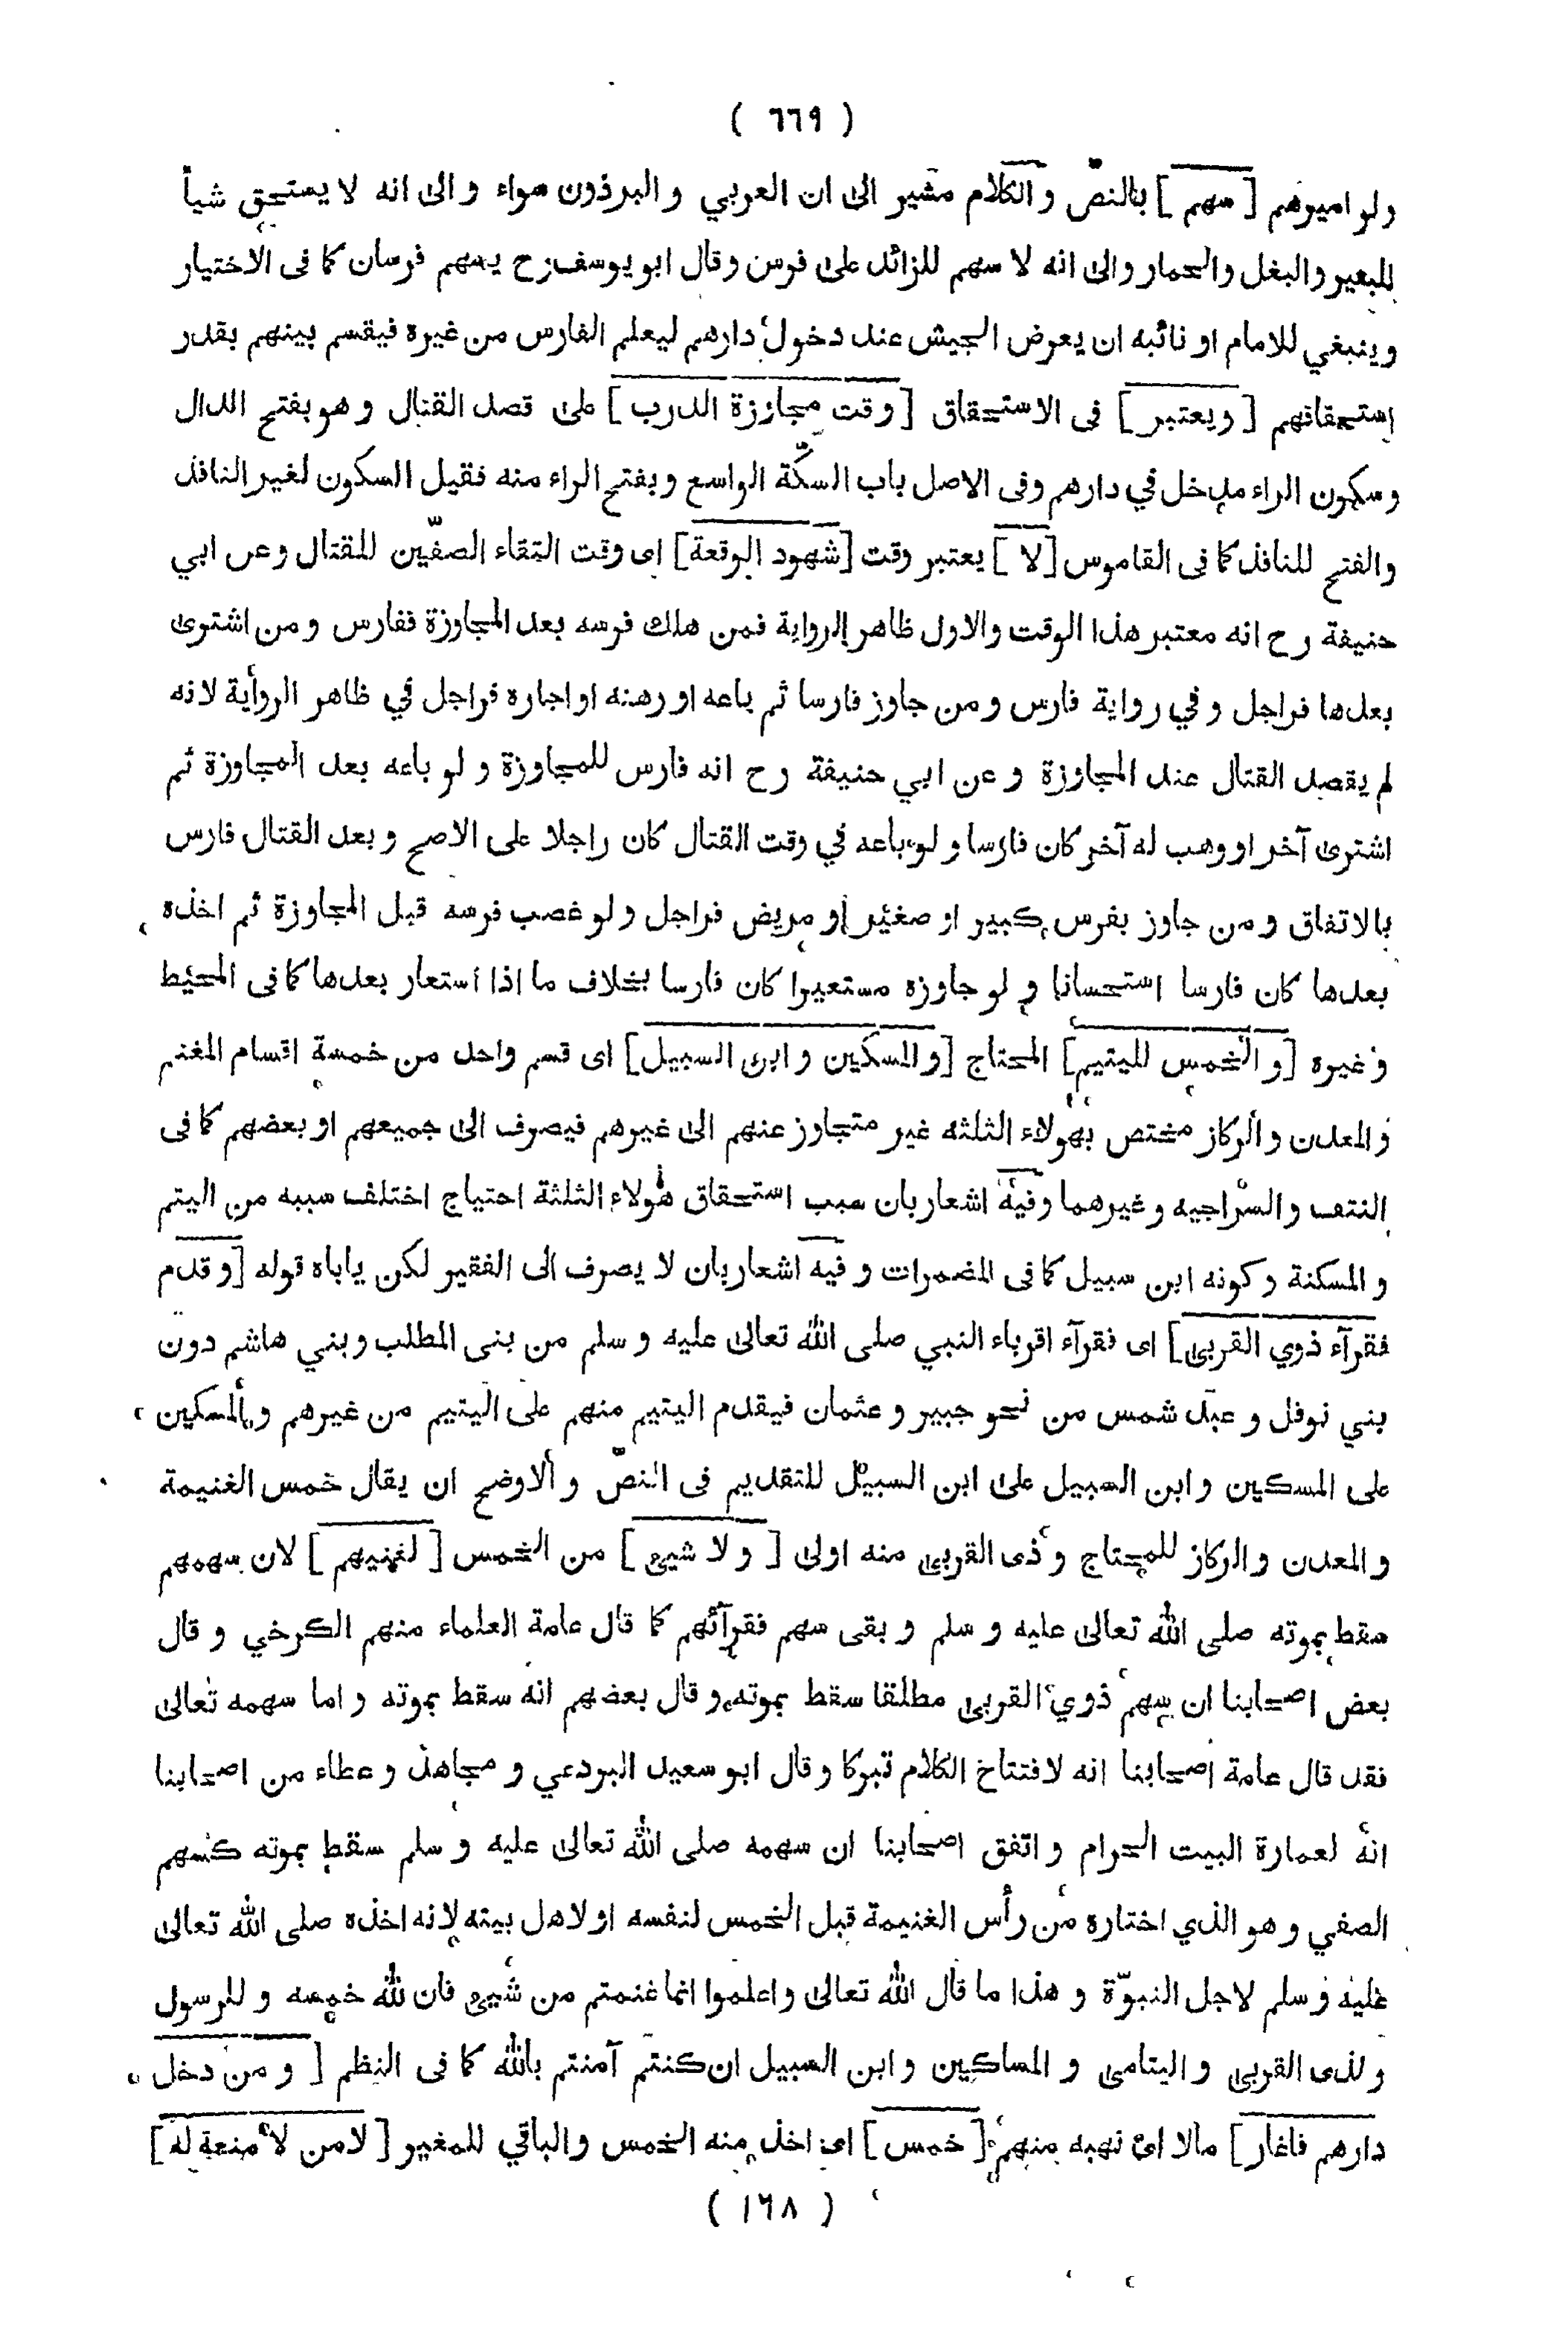 ( ٦٦٩ )
ولو اميرهم [ سهم ] بالنصّ و الكلام مشير الى ان العربي و البرذون سواء و الى انه لا يستحق شيأ
للبعير و البغل والحمار والى انه لا سهم للزائد على فرس وقال ابو يوسف رح يسهم فرسان كما فى الاختيار
وينبغي للامام او نائبه ان يعرض الجيش عند دخول دارهم ليعلم الفارس من غيره فيقسم بينهم بقدر
استحقاقهم [ ويعتبر ] فى الاستحقاق [ وقت مجاوزة الدرب ] على قصد القتال و هو بفتح الدال
و سكون الراء مدخل في دارهم وفى الاصل باب السكّة الواسع و بفتح الراء منه فقيل السكون لغير النافذ
والفتح للنافذ كما فى القاموس [ لا ] يعتبر وقت [ شهود الوقعة ] اى وقت التقاء الصفّين للقتال وعن ابي
حنيفة رح انه معتبر هذا الوقت والاول ظاهر الرواية فمن هلك فرسه بعد المجاوزة ففارس و من اشترى
بعدها فراجل و في رواية فارس و من جاوز فارسا ثم باعه او رهنه او اجاره فراجل في ظاهر الرواية لانه
لم يقصد القتال عند المجاوزة و عن ابي حنيفة رح انه فارس للمجاوزة و لو باعه بعد المجاوزة ثم
اشترى آخر او وهب له آخر كان فارسا و لو باعه في وقت القتال كان راجلا على الاصح و بعد القتال فارس
بالاتفاق و من جاوز بفرس كبير او صغير او مريض فراجل و لو غصب فرسه قبل المجاوزة ثم اخذه
بعدها كان فارسا استحسانا و لو جاوزه مستعيرا كان فارسا بخلاف ما اذا استعار بعدها كما فى المحيط
و غيره [ و الخمس لليتيم ] المحتاج [ و المسكين و ابن السبيل ] اى قسم واحد من خمسة اقسام المغنم
و المعدن و الركاز مختص بهولاء الثلثه غير متجاوز عنهم الى غيرهم فيصرف الى جميعهم او بعضهم كما فى
النتف و السراجيه و غيرهما و فيه اشعار بان سبب استحقاق هولاء الثلثة احتياج اختلف سببه من اليتم
و المسكنة و كونه ابن سبيل كما فى المضمرات و فيه اشعار بان لا يصرف الى الفقير لكن ياباه قوله [ و قدم
فقرآء ذوي القربى ] اى فقرآء اقرباء النبي صلى الله تعالى عليه و سلم من بنى المطلب و بني هاشم دون
بني نوفل و عبد شمس من نحو جبير و عثمان فيقدم اليتيم منهم على اليتيم من غيرهم و المسكين
على المسكين و ابن السبيل على ابن السبيل للتقديم فى النصّ و الاوضح ان يقال خمس الغنيمة
و المعدن و الركاز للمحتاج و ذى القربى منه اولى [ و لا شيئ ] من الخمس [ لغنيهم ] لان سهمهم
سقط بموته صلى الله تعالى عليه و سلم و بقى سهم فقرآئهم كما قال عامة العلماء منهم الكرخي و قال
بعض اصحابنا ان سهم ذوي القربى مطلقا سقط بموته و قال بعضهم انه سقط بموته و اما سهمه تعالى
فقد قال عامة اصحابنا انه لافتتاح الكلام تبركا و قال ابو سعيد البردعي و مجاهد و عطاء من اصحابنا
انه لعمارة البيت الحرام و اتفق اصحابنا ان سهمه صلى الله تعالى عليه و سلم سقط بموته كسهم
الصفي و هو الذي اختاره من رأس الغنيمة قبل الخمس لنفسه او لاهل بيته لانه اخذه صلى الله تعالى
عليه و سلم لاجل النبوّة و هذا ما قال الله تعالى و اعلموا انما غنمتم من شيئ فان لله خمسه و للرسول
و لذى القربى و اليتامى و المساكين و ابن السبيل ان كنتم آمنتم بالله كما فى النظم [ و من دخل
دارهم فاغار ] مالا اى نهبه منهم [ خمس ] اى اخذ منه الخمس والباقي للمغير [ لا من لا منعة له ]
( ١٦٨ )